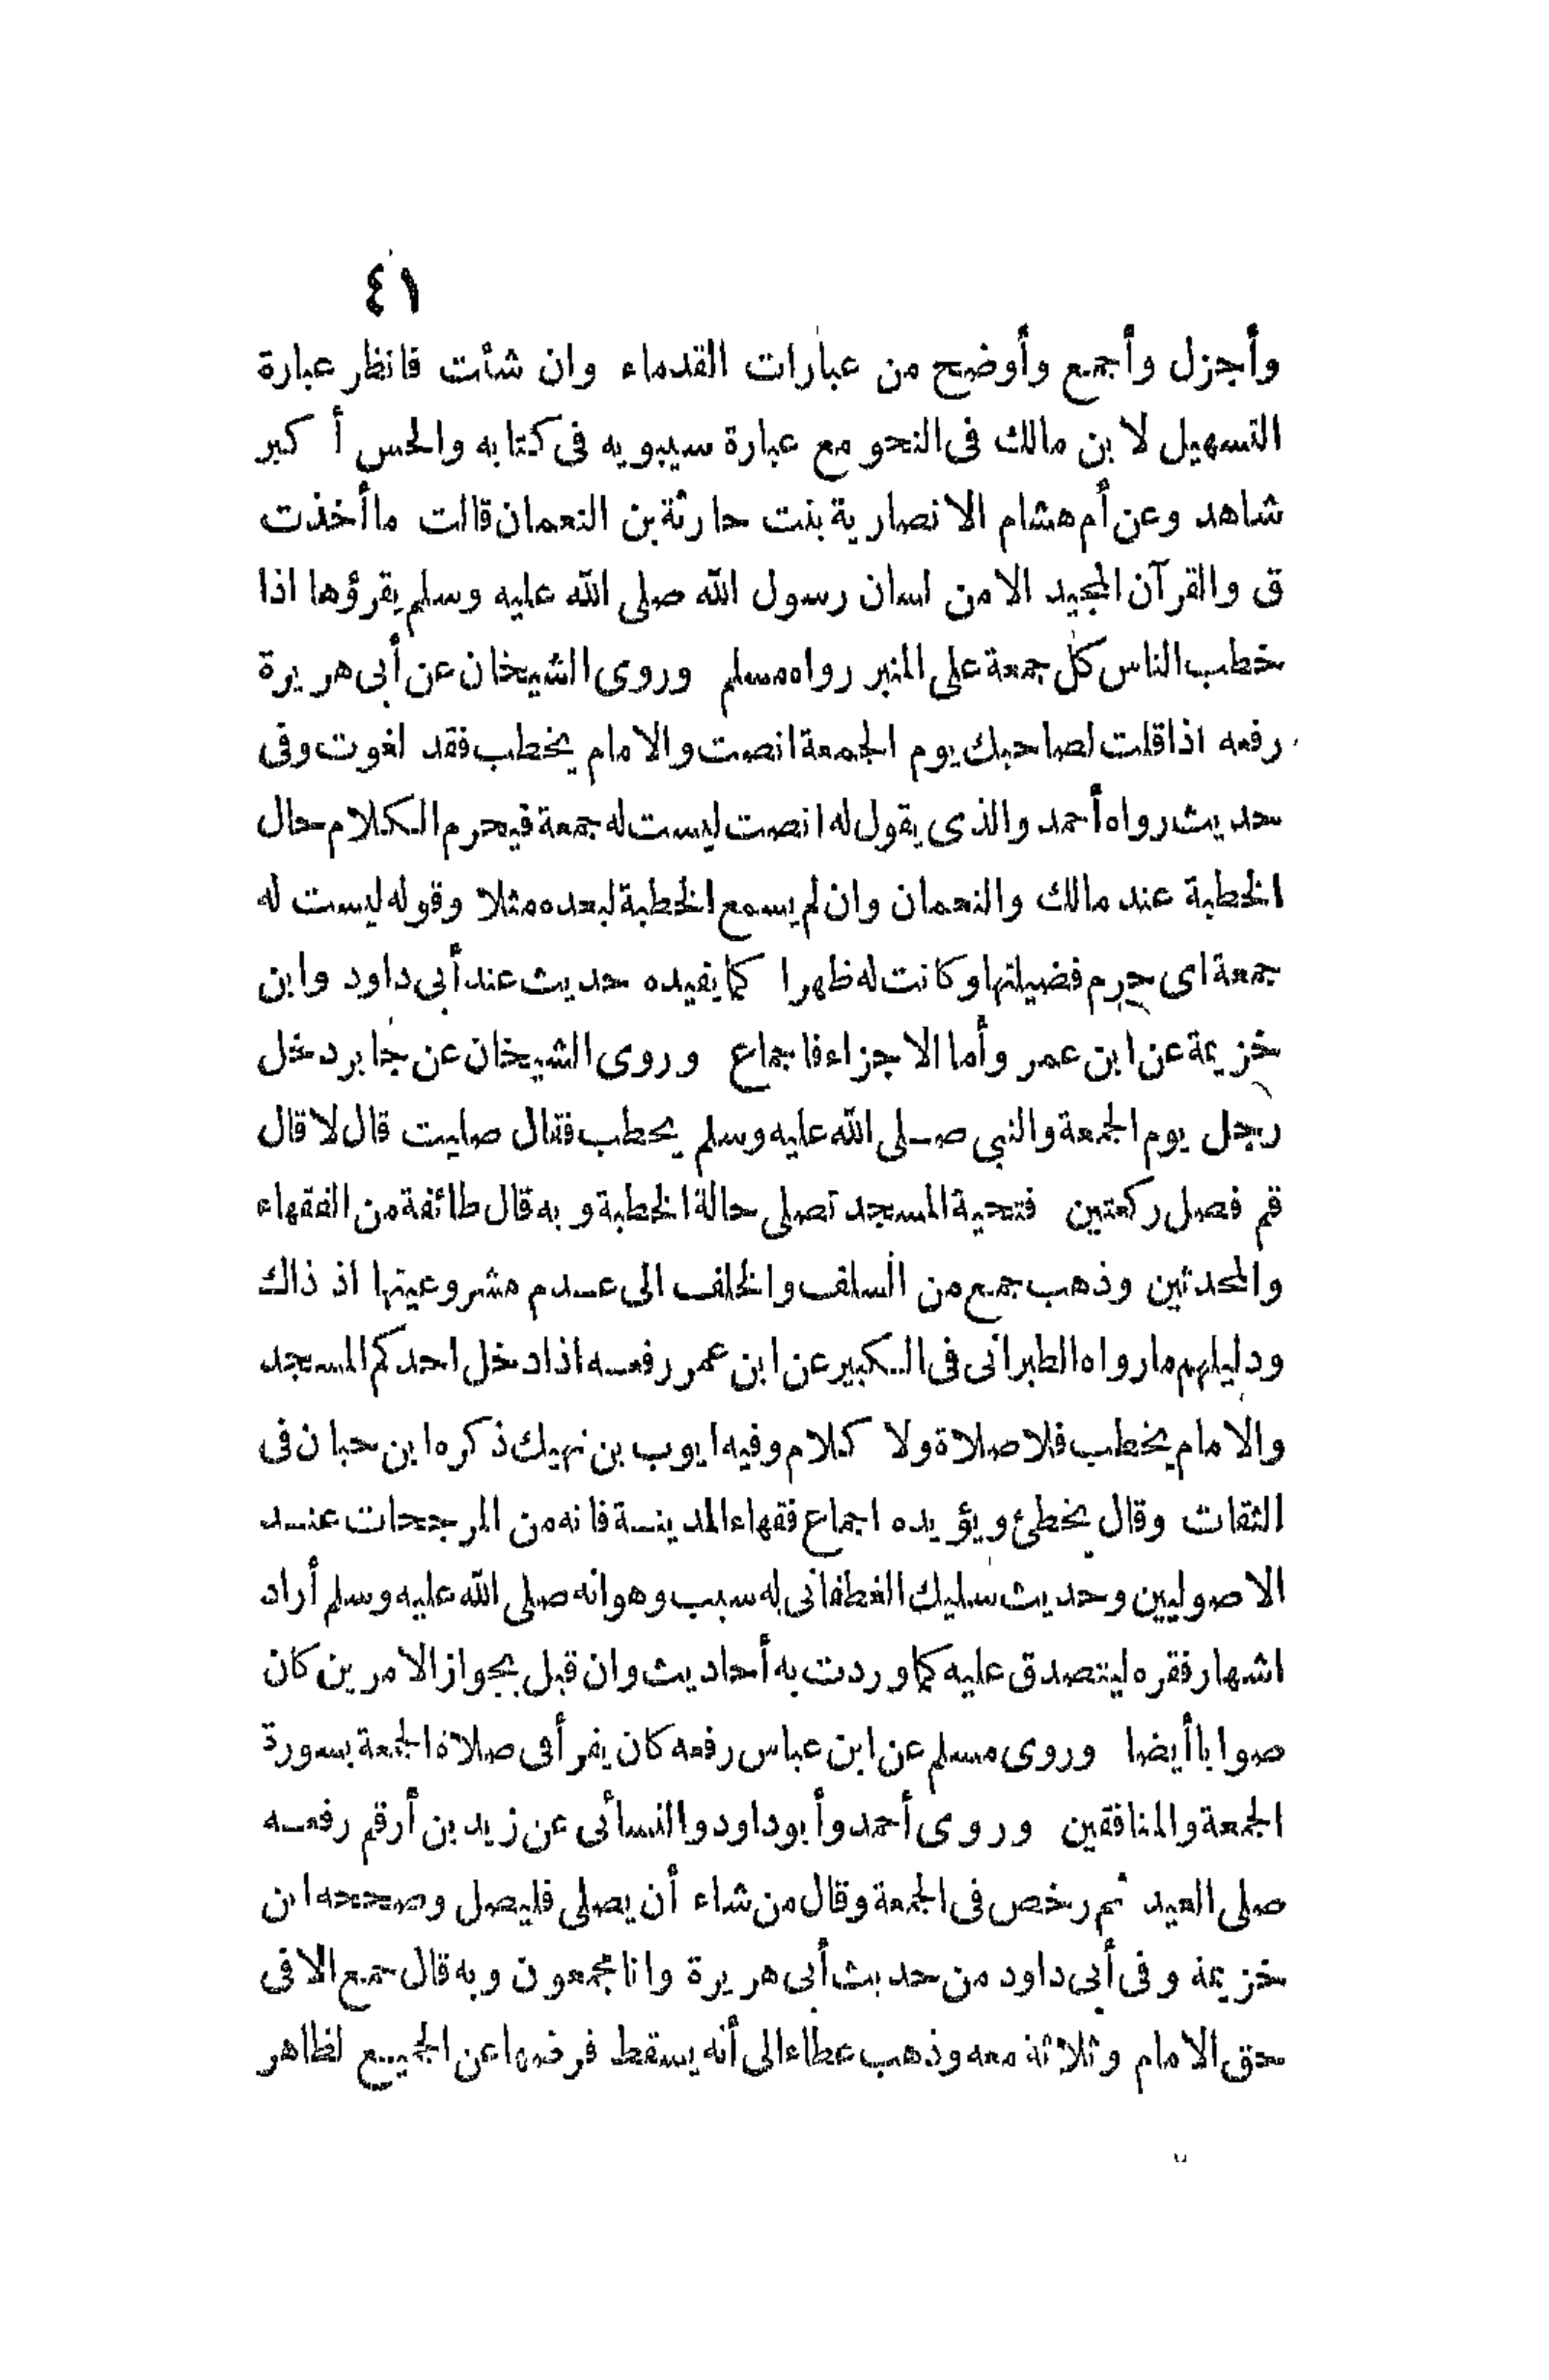 ٤١
وأجزل وأجمع وأوضح من عبارات القدماء وان شئت فانظر عبارة
التسهيل لابن مالك فى النحو مع عبارة سيبويه فى كتابه والحس أكبر
شاهد وعن أم هشام الانصارية بنت حارثة بن النعمان قالت ما أخذت
ق والقرآن المجيد الا من لسان رسول الله صلى الله عليه وسلم يقرؤها اذا
خطب الناس كل جمعة على المنبر رواه مسلم وروى الشيخان عن أبى هريرة
رفعه اذا قلت لصاحبك يوم الجمعة انصت والامام يخطب فقد لغوت وفى
حديث رواه أحمد والذى يقول له انصت ليست له جمعة فيحرم الكلام حال
الخطبة عند مالك والنعمان وان لم يسمع الخطبة لبعده مثلا وقوله ليست له
جمعة اى حرم فضيلتها وكانت له ظهرا كما يفيده حديث عند أبى داود وابن
خزيمة عن ابن عمر وأما الاجزاء فاجماع وروى الشيخان عن جابر دخل
رجل يوم الجمعة والنبى صلى الله عليه وسلم يخطب فقال صليت قال لا قال
قم فصل ركعتين فتحية المسجد تصلى حالة الخطبة وبه قال طائفة من الفقهاء
والمحدثين وذهب جمع من السلف والخلف الى عدم مشروعيتها اذ ذاك
ودليلهم ما رواه الطبرانى فى الكبير عن ابن عمر رفعه اذا دخل احدكم المسجد
والامام يخطب فلا صلاة ولا كلام وفيه ايوب بن نهيك ذكره ابن حبان فى
الثقات وقال يخطئ ويؤيده اجماع فقهاء المدينة فانه من المرجحات عند
الاصوليين وحديث سليك الغطفانى له سبب وهو انه صلى الله عليه وسلم أراد
اشهار فقره ليتصدق عليه كما وردت به أحاديث وان قبل بجواز الامرين كان
صوابا أيضا وروى مسلم عن ابن عباس رفعه كان يقرأ فى صلاة الجمعة بسورة
الجمعة والمنافقين وروى أحمد وأبو داود والنسائى عن زيد بن أرقم رفعه
صلى العيد ثم رخص فى الجمعة وقال من شاء أن يصلى فليصل وصححه ابن
خزيمة وفى أبى داود من حديث أبى هريرة وانا مجمعون وبه قال جمع الا فى
حق الامام وثلاثة معه وذهب عطاء الى أنه يسقط فرضها عن الجميع لظاهر